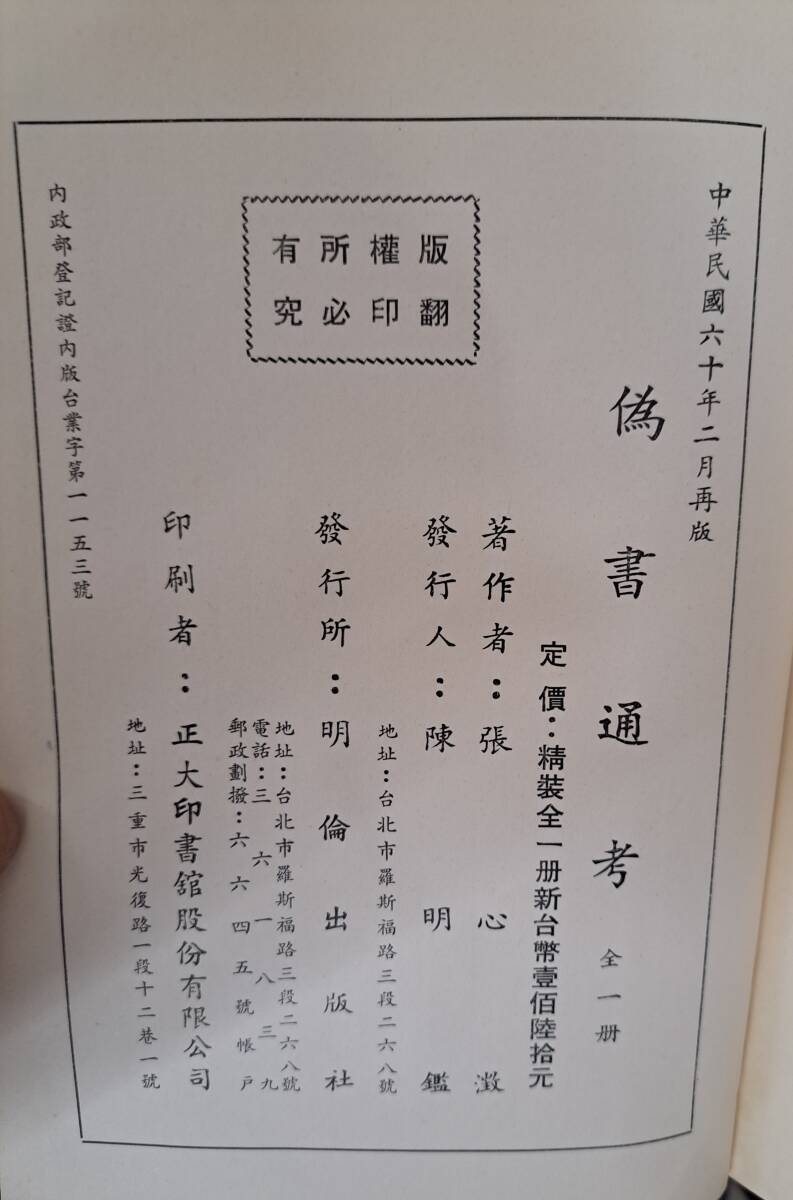 中華民國六十年二月再版
偽書通考 全一册
定價：精裝全一册新台幣壹佰陸拾元
著作者：張心澂
發行人：陳明鑑
地址：台北市羅斯福路三段二六八號
發行所：明倫出版社
地址：台北市羅斯福路三段二六八號
電話：三六一八三九
郵政劃撥：六六四五號帳戶
印刷者：正大印書舘股份有限公司
地址：三重市光復路一段十二巷一號
版權所有
翻印必究
內政部登記證內版台業字第一一五三號